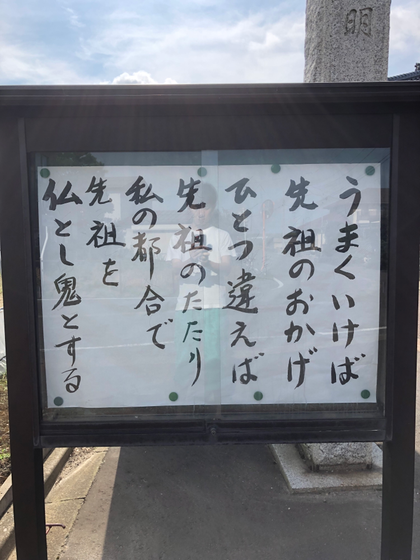 明
うまくいけば
先祖のおかげ
ひとつ違えば
先祖のたたり
私の都合で
先祖を
仏とし鬼とする